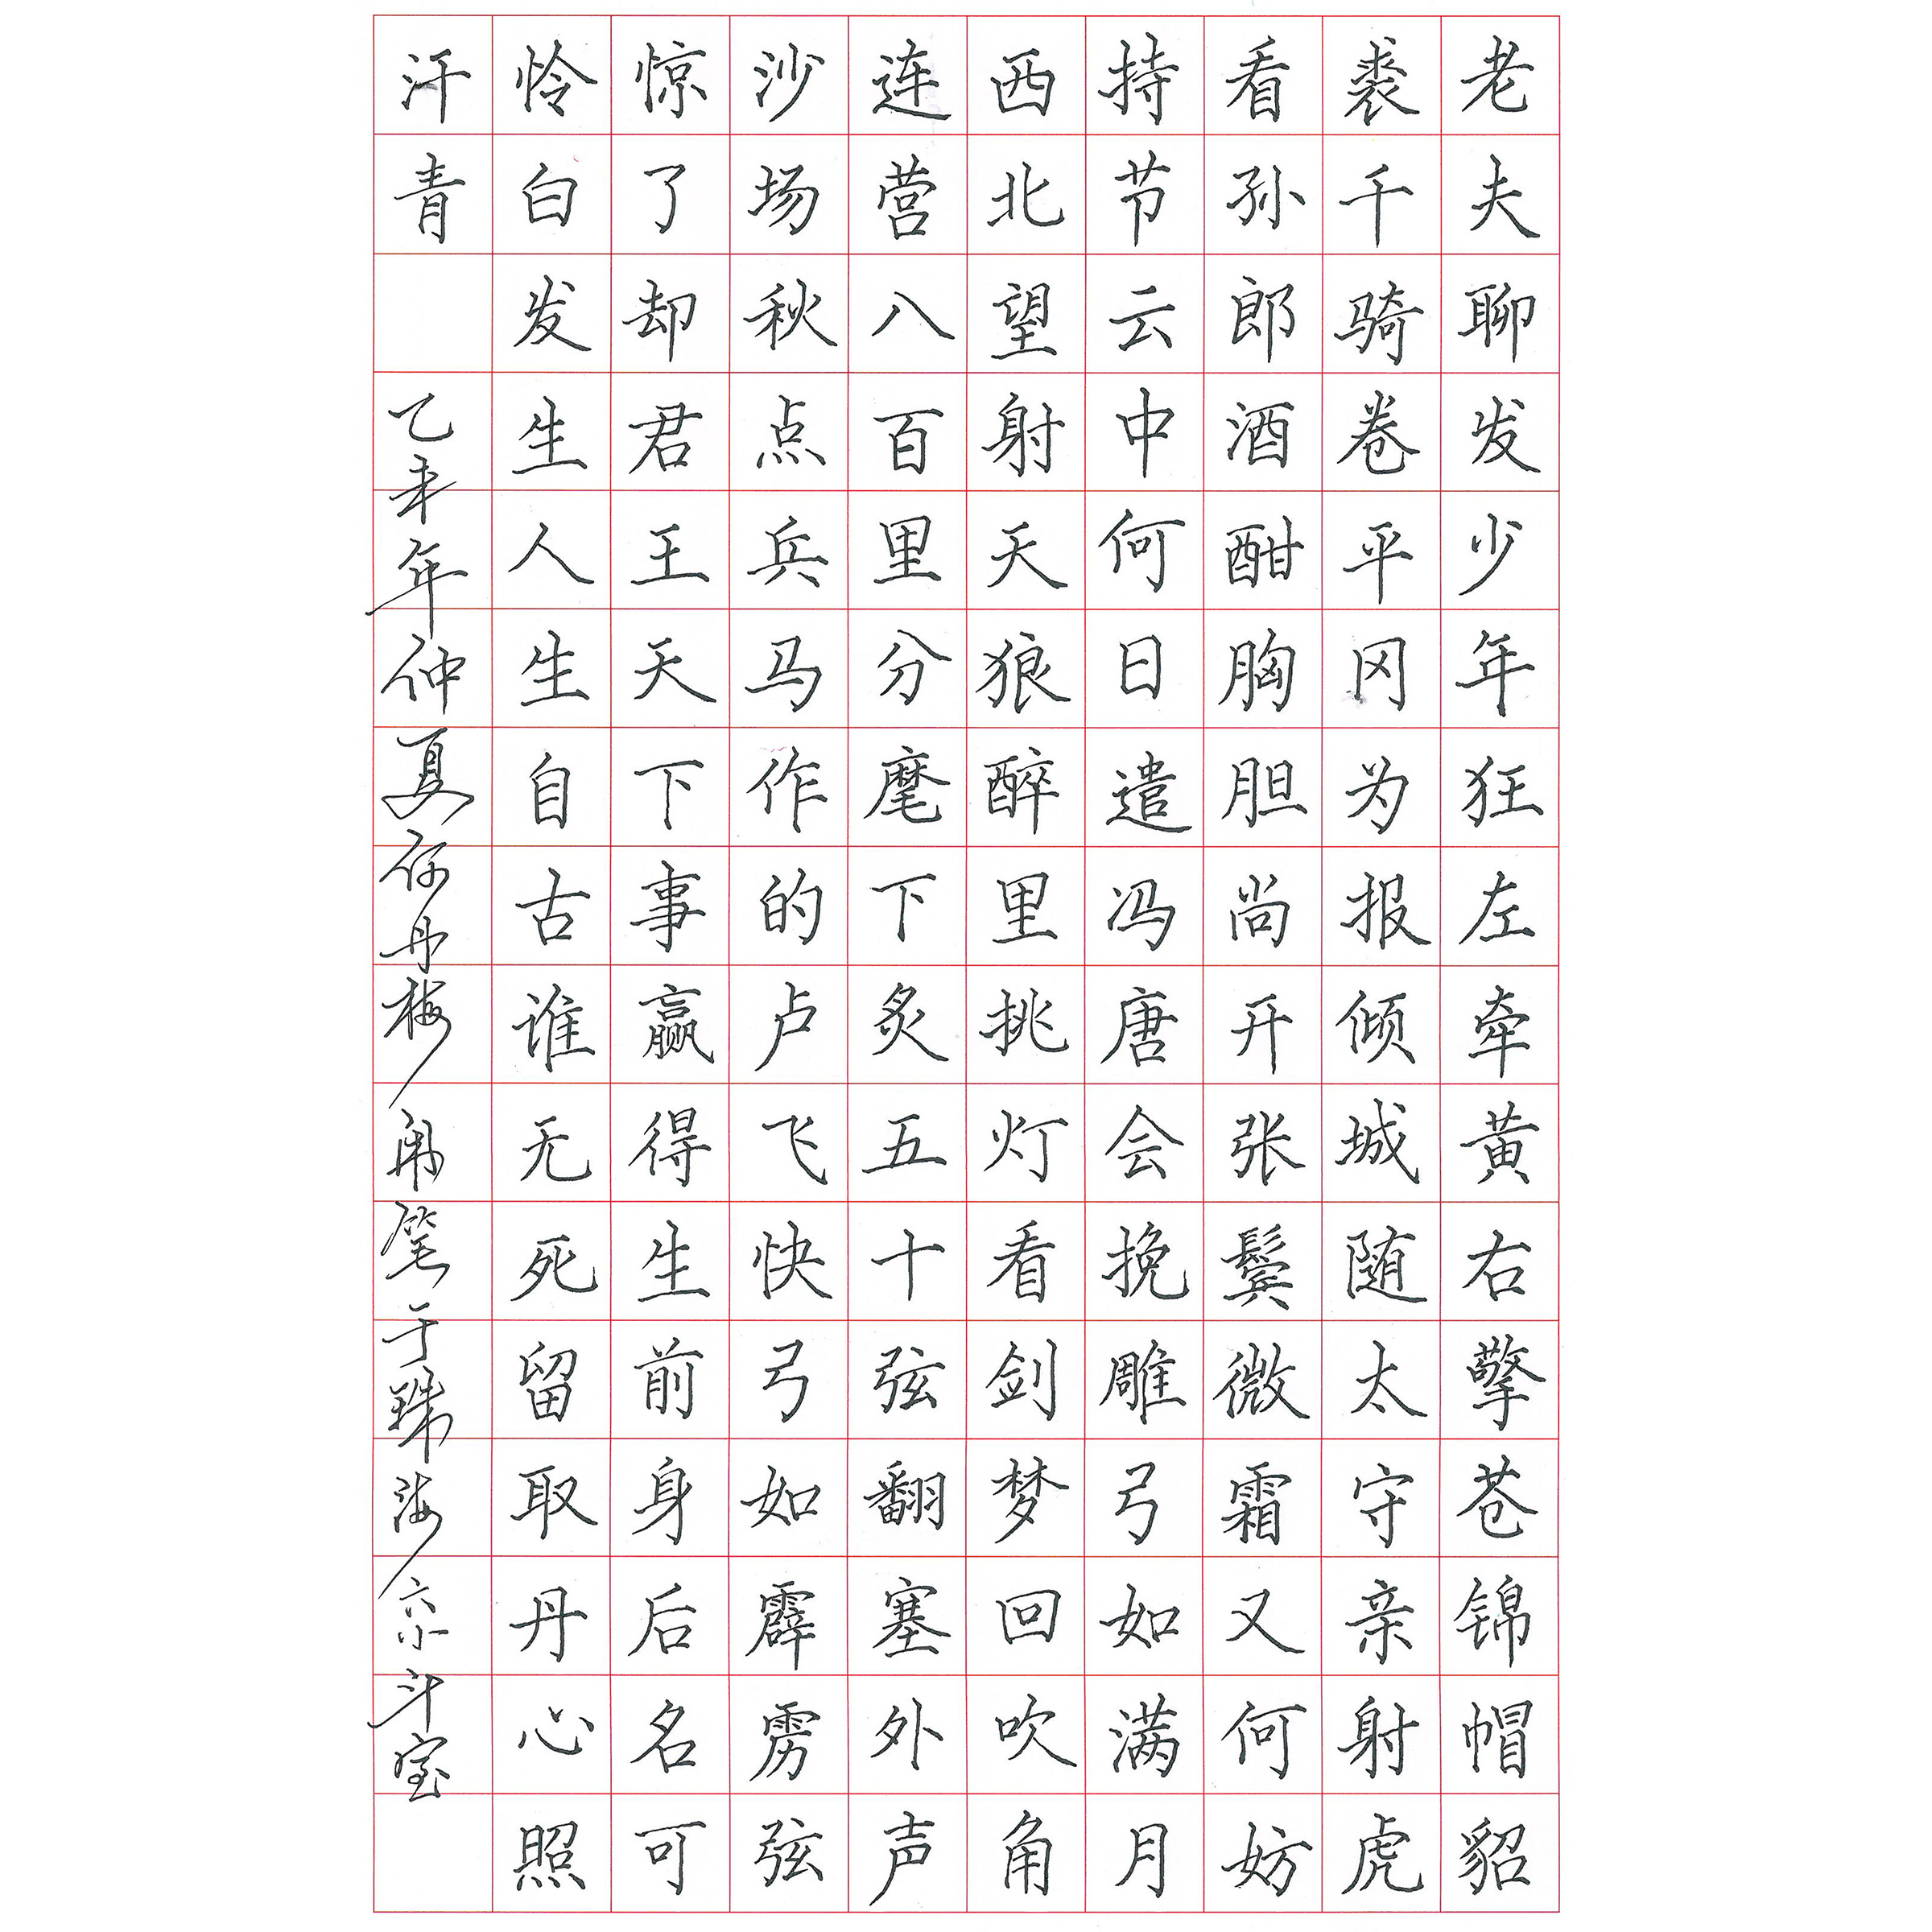 老夫聊发少年狂左牵黄右擎苍锦帽貂
裘千骑卷平冈为报倾城随太守亲射虎
看孙郎酒酣胸胆尚开张鬓微霜又何妨
持节云中何日遣冯唐会挽雕弓如满月
西北望射天狼醉里挑灯看剑梦回吹角
连营八百里分麾下炙五十弦翻塞外声
沙场秋点兵马作的卢飞快弓如霹雳弦
惊了却君王天下事赢得生前身后名可
怜白发生人生自古谁无死留取丹心照
汗青 乙未年仲夏丹梅笔于珠海斗室